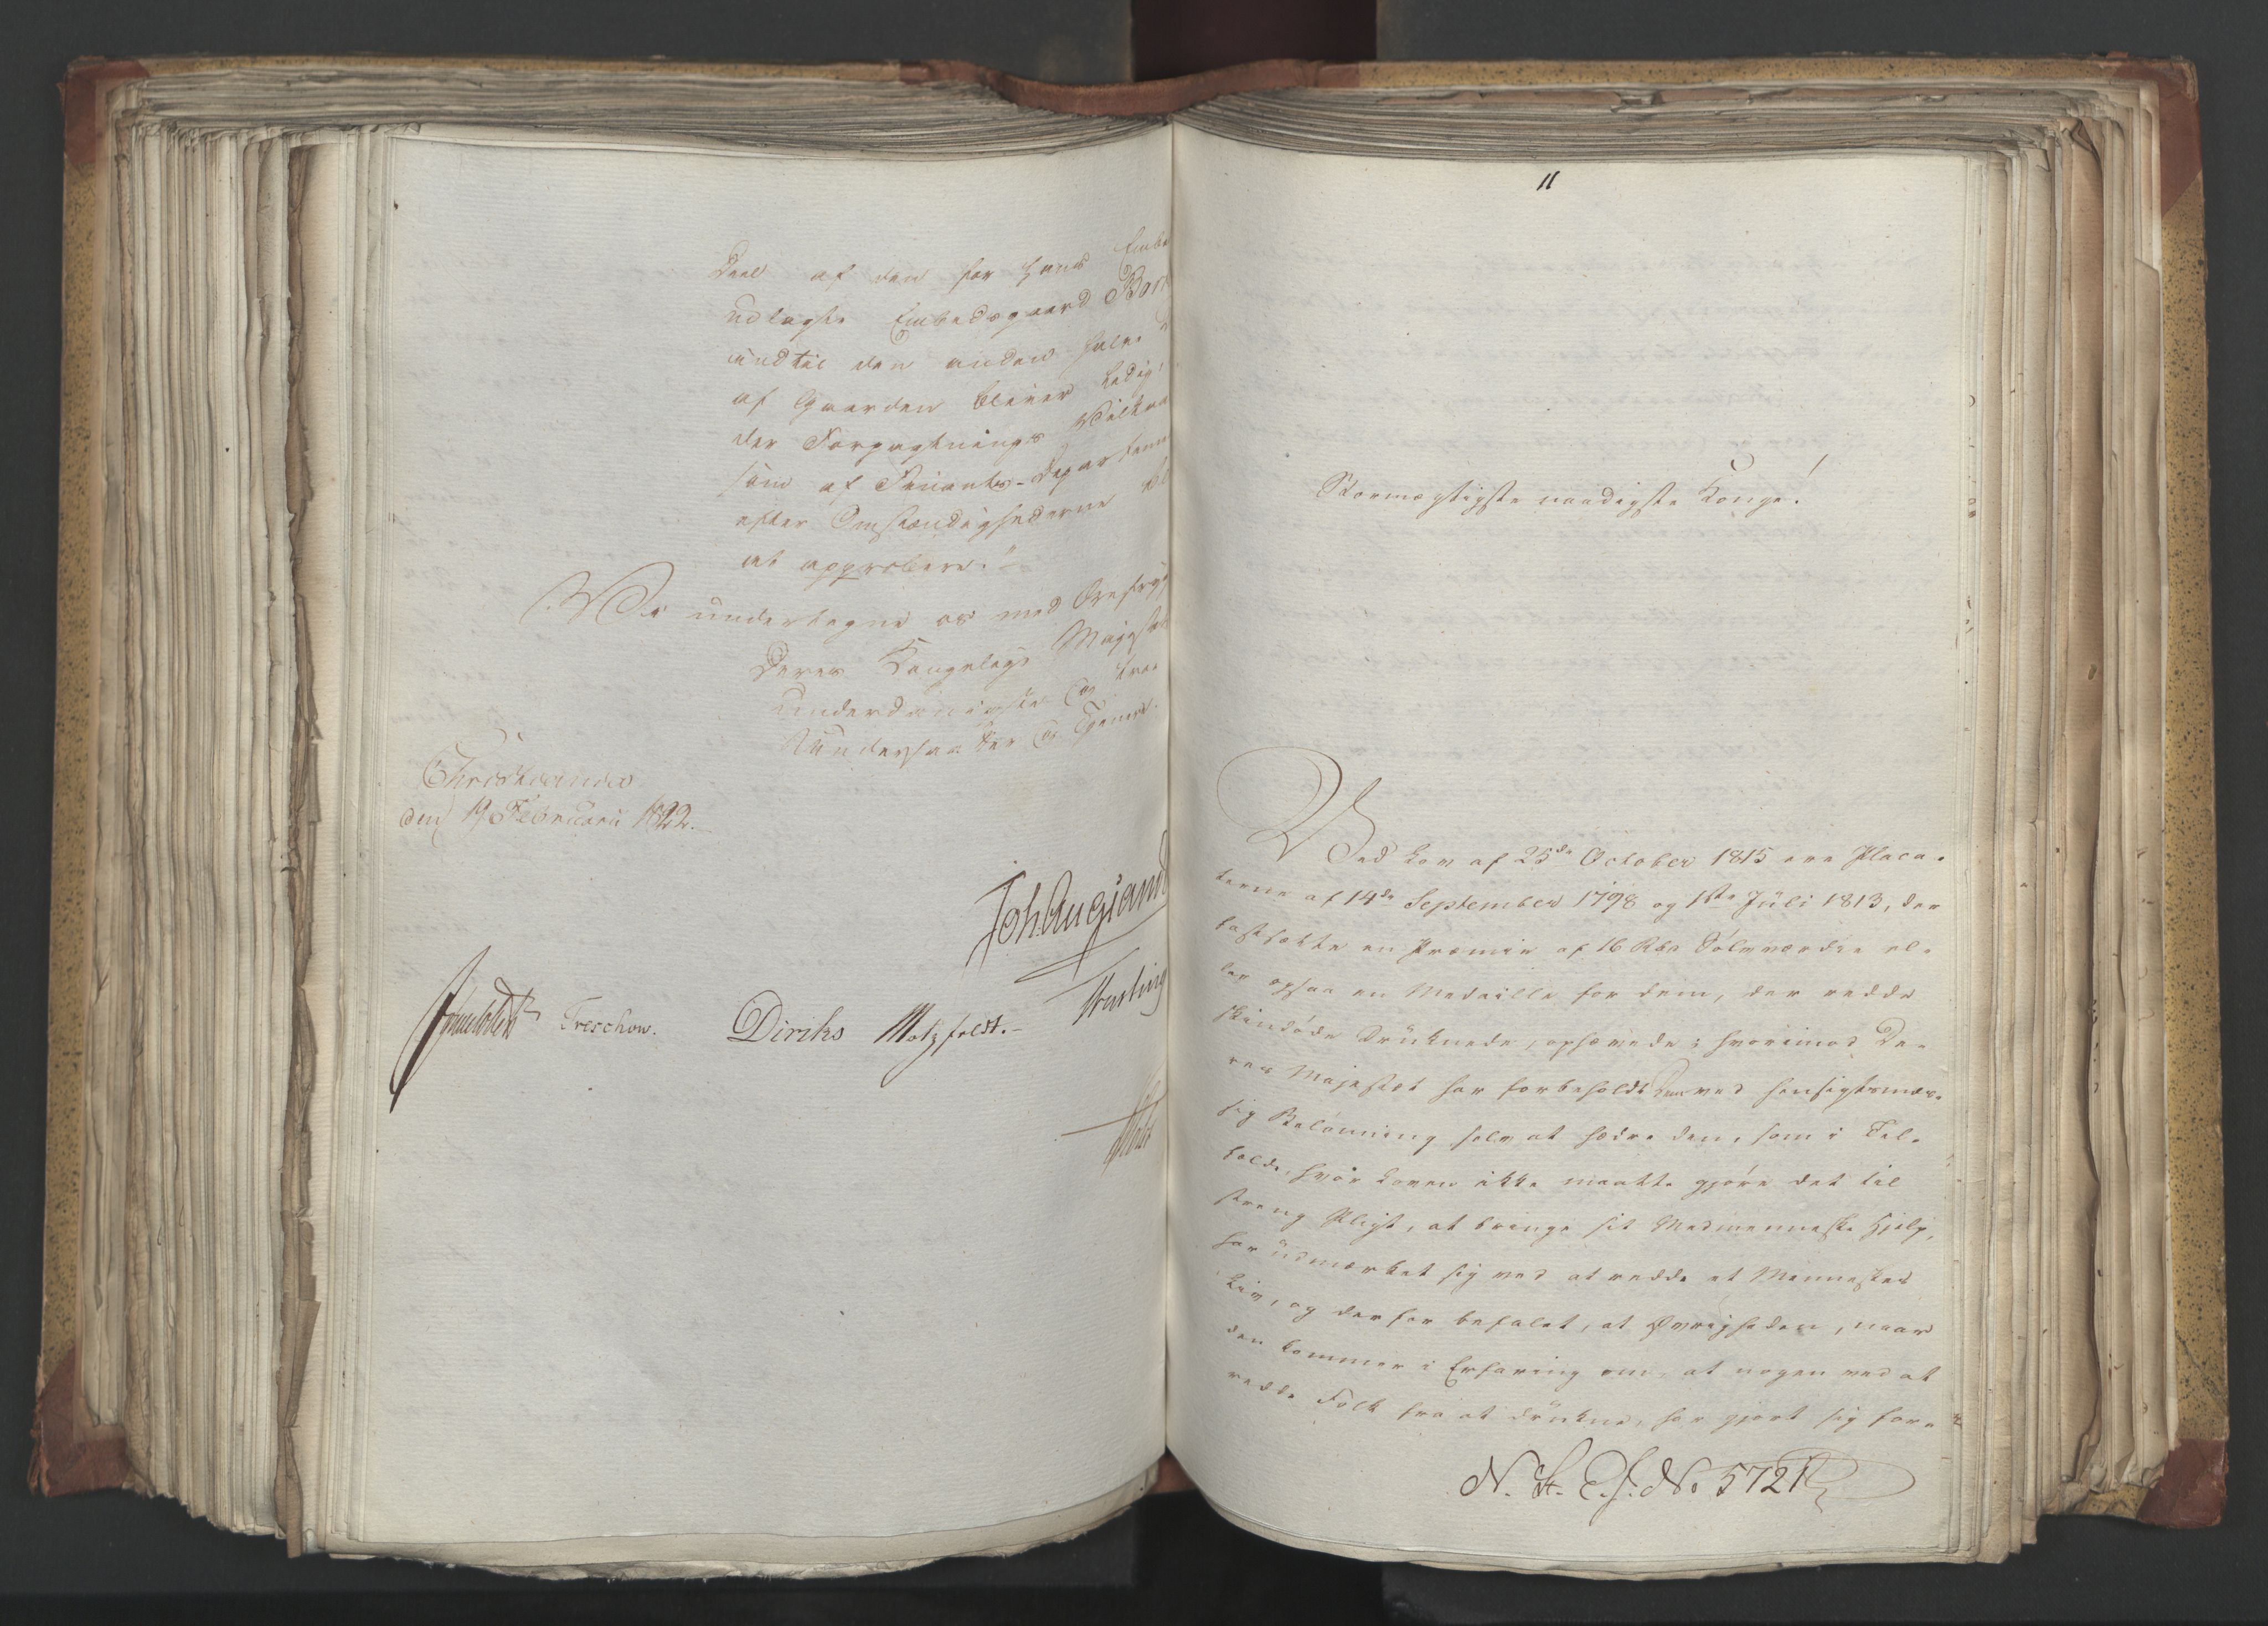 Deel af den for hans Embe
udlagte Embedsgaard Bor
indtil den anden halve
af Gaarden bliver ledig
der Forpagtnings Vilkaa
som af Finants-Departem
efter Omstændighederne
at approbere."
Vi undertegne os med Ærefrygt
Deres Kongelige Majestæt
underdanigste og troe
Undersaatter og Tjenere.
Christiania
den 19 Februarii 1822.
Joh. Aug. Sand
Sommerhielm Treschow. Diriks Motzfeldt.
Fasting
Holst
11
Stormægtigste naadigste Konge!
Ved Lov af 25de October 1815 ere Placa-
terne af 14de September 1798 og 1ste Juli 1813, der
fastsatte en Præmie af 16 Rbd Sølvværdie el-
ler ogsaa en Medaille for dem, der redde
skindøde Druknede, ophævede; hvorimod De-
res Majestæt har forbeholdt Dem ved hensigtsmæs-
sig Belønning selv at hædre den, som i Til-
fælde, hvor Loven ikke maatte gjøre det til
streng Pligt, at bringe sit Medmenneske Hjelp,
har udmærket sig ved at redde et Menneskes
Liv, og derfor befalet, at Øvrigheden, naar
den kommer i Erfaring om, at nogen ved at
redde Folk fra at drukne, har gjort sig for-
N. St. E. J. No 5721